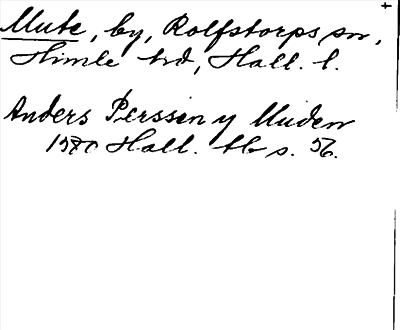 Mute, by, Rolfstorps sn,
Himle hd, Hall. l.
Anders Perssen y Muden
1580 Hall. tb s. 56.